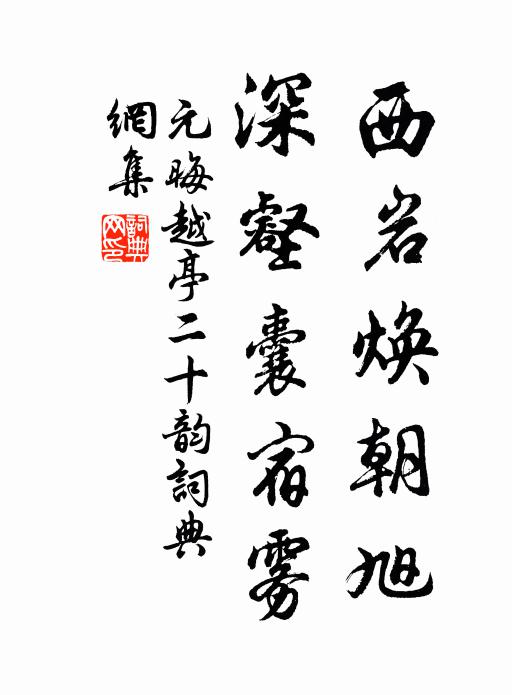 西岩焕朝旭
深壑囊宿雾
元晦越亭二十韵詞典
網集
詞典
网印